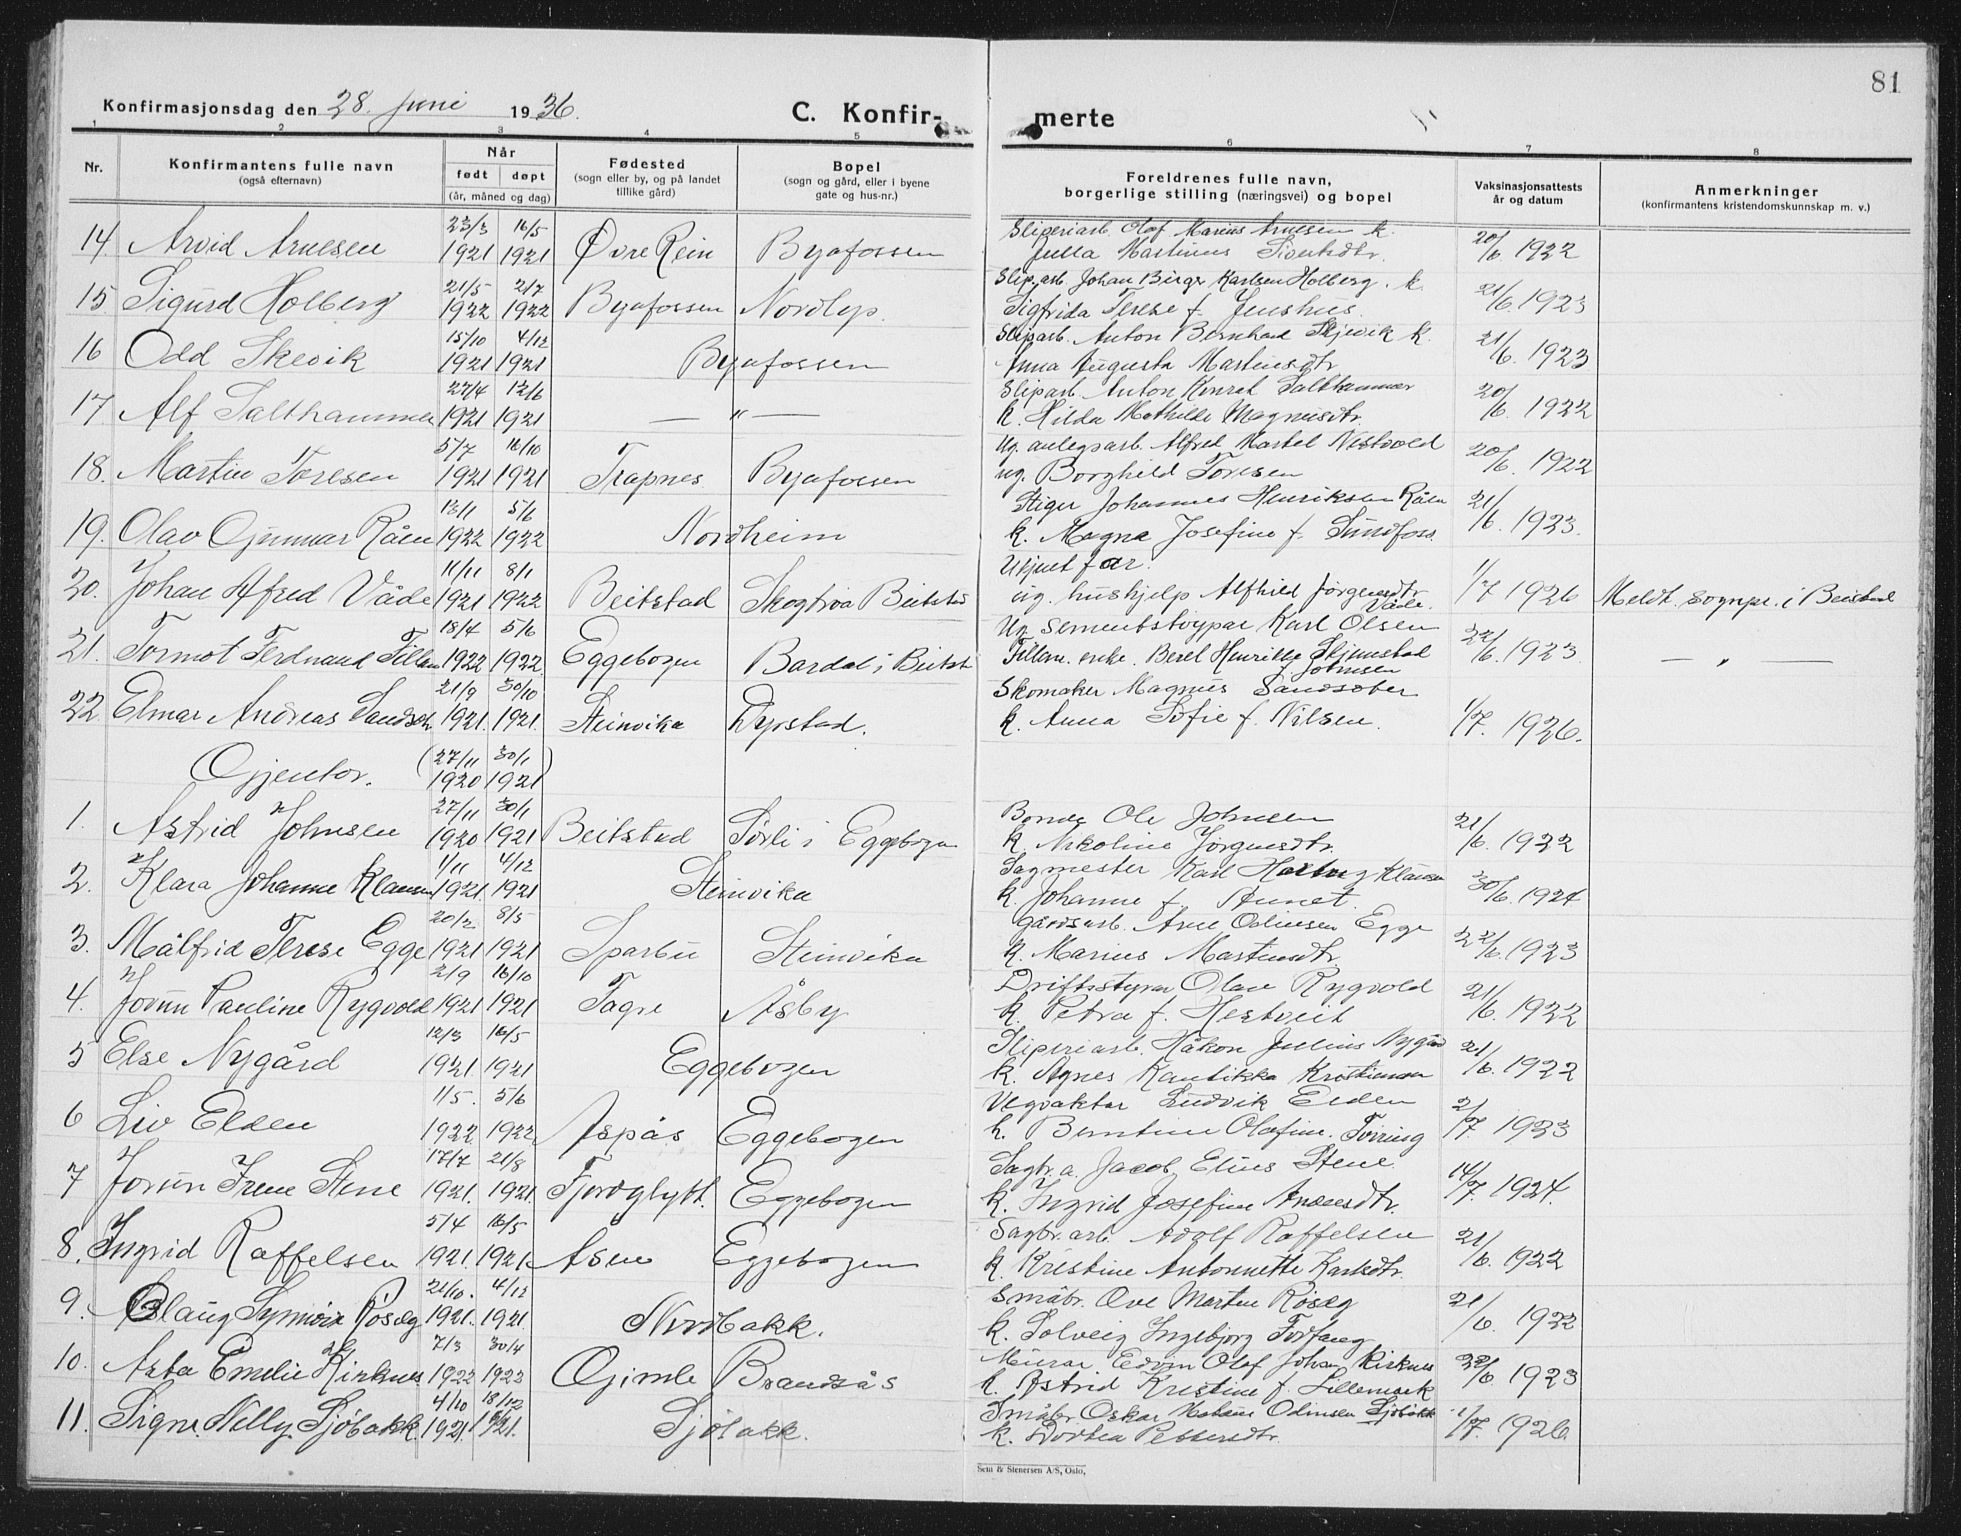 81
Konfirmasjonsdag den 28. Juni 1936. C. Konfir- merte
1 2 3 4 5 6 7 8
Nr. Konfirmantens fulle navn (også efternavn) Når født døpt (år, måned og dag) Fødested (sogn eller by, og på landet tillike gård) Bopel (sogn og gård, eller i byene gate og hus-nr.) Foreldrenes fulle navn, borgerlige stilling (næringsvei) og bopel Vaksinasjonsattests år og datum Anmerkninger (konfirmantens kristendomskunnskap m. v.)
14. Arvid Arnesen 23/3 1921 16/5 1921 Øvre Rein Byafossen Sliperiarb. Olaf Marius Arnesen k. Julla 20/6 1922
15 Sigurd Holberg 21/5 1922 2/7 1922 Byafossen Slip.arb. Johan Birger Karlsen Holberg. k. Sigfrida Terese f. Jenshus. 21/6. 1923
16 Odd Skevik 15/10 1921 4/12 1921 Byafossen Sliparb. Anton Bernhard Skjevik k. Anna Augusta Martinsdtr 21/6. 1923
17. Alf Salthammer 27/4 1921 12/6 1921 — " — Sliparb Anton Konrat Salthammer k. Hilda Mathilde Magnusdtr. 20/6. 1922
18. Martin Toresen 5/7 1921 16/10 1921 Trapnes Byafossen Ug. anlegsarb. Alfred Martel Nestvold ug. Borghild Toresen 20/6. 1922
19. Olav Gunnar Råen 13/1 1922 5/6 1922 Nordheim Stiger Johannes Henriksen Råen k. Magna Josefine f. Sundfoss. 21/6. 1923.
20. Johan Alfred Våde 11/11 1921 8/1 1922 Beitstad Beitstad Ukjent far. ug. hushjelp Alfhild Jørgensdtr Våde. 1/7 1926 Meldt sognepr. i Beitstad
21. Tormot Ferdnand Tillem 18/4 1922 5/6 1922. Eggebogen Bardal i Beitst. Ug sementstøypar Karl Olsen Tillem. enke. Berel Henrikke Skjemstad Johnsen 22/6. 1923 — " —
22 Elmar Andreas Sandsøbr 21/9 1921. 30/10 1921. Steinvika Dyrstad. Skomaker Magnus Sandsøber k. Anna Sofie f. Nilsen. 1/7. 1926.
Gjentor. (27/11 1920 30/1 1921)
1. Astrid Johnsen 27/11 1920 30/1 1921 Beitstad Sørli i Eggebogen Bonde Ole Johnsen k. Nikoline Jørgensdtr. 21/6. 1922
2. Klara Johanne Klausen 1/11 1921. 4/12 1921 Steinvika Sagmester Karl Klausen k. Johanne f. 30/6. 1924
3. Målfrid Terese Egge 20/2 1921 8/5 1921 Sparbu Steinvika Gårdsarb. Arne Odinsen Egge k. Marius Martinsdtr. 22/6. 1923
4. Jorun Pauline Rygvold 2/9 1921 16/10 1921 Åsby Driftsstyrar Olav Rygvold k. Petra f. Hestveit 21/6. 1922
5 Else Nygård 12/3 1921. 16/5 1921 Eggebogen Sliperiarb. Håkon Julius Nygård k. Agnes Kristiansen 21/6. 1922
6 Liv Elden 1/5. 1922 5/6 1922 Aspås Eggebogen Vegvaktar Ludvik Elden k. Berntine Olafine. Tørring 2/7. 1923
7 Jorun Irene Stene 17/7 1921. 21/8 1921 Fjordglytt. Eggebogen Sagbr. a. Jacob Elius Stene. k. Ingrid Josefine 14/7. 1924.
8. Ingrid Raffelsen 5/4 1921. 16/5 1921. Åsen Eggebogen Sagbr. arb. Adolf Raffelsen k. Kristine Antonnette Karlsdtr. 21/6. 1922
9. Aslaug Synnøve Røsæg 21/10. 1921. 4/12 1921. Nordbakk. Småbr. Ove Morten Røsæg k. Solveig Ingebjørg Forfang 21/6. 1922
10. Asta Emelie Kirknes 7/3 1922 30/4 1922 Gimle Brandsås Murar. Edvin Olaf Johan Kirknes k. Astrid Kristine f. Lillemark 22/6. 1923
11. Signe. Nelly. Sjøbakk. 4/10 1921. 18/12 1921. Sjøbakk. Småbr. Oskar Odinsen Sjøbakk k. Dortea Pettersdtr. 1/7. 1926.
Sem & Stenersen A/S, Oslo,